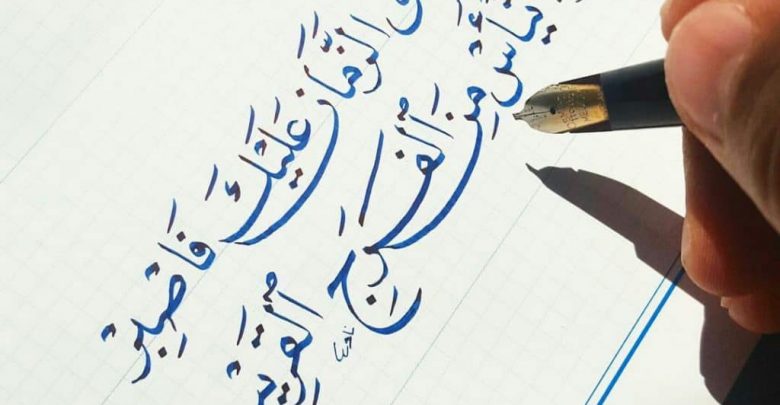 الزَّمَانُ عَلَيْكَ فَاصْبِرْ
تيأَسْ مِنَ ٱلْفَرَجِ
ٱلْقَرِيـ